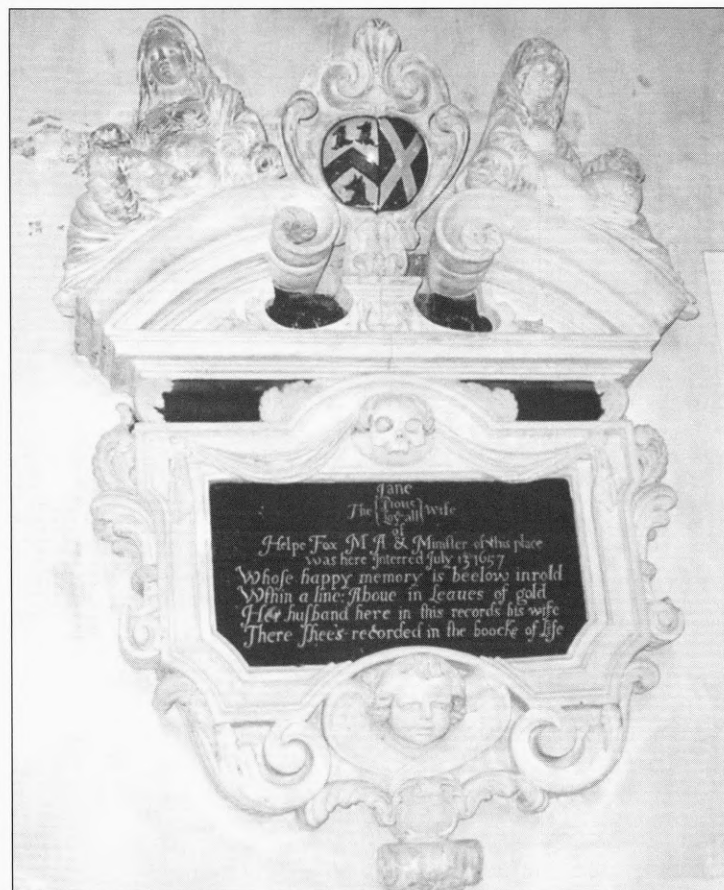 Jane
The {Pious Loy-all} Wife
of
Helpe Fox M A & Minister of this place
was here Interred July 13 1657
Whose happy memory is beelow inrold
Wthin a line: Aboue in Leaues of gold
Her husband here in this records his wife
There Shees recorded in the boocke of Life